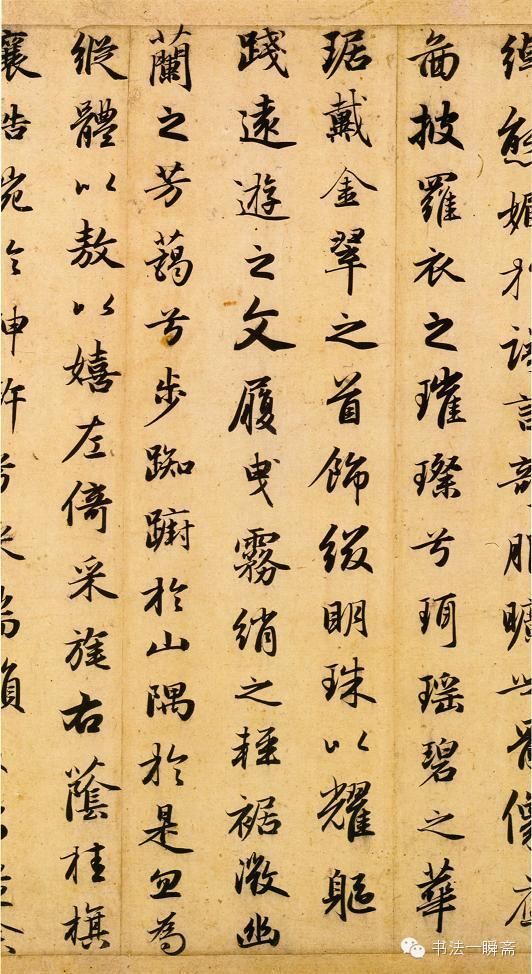 綽態媚於語言奇服曠世骨像應
啚披羅衣之璀璨兮珥瑤碧之華
琚戴金翠之首飾綴明珠以耀軀
踐遠遊之文履曳霧綃之輕裾微幽
蘭之芳藹兮步踟躕於山隅於是忽為
縱體以敖以嬉左倚采旄右蔭桂旗
书法一瞬斋